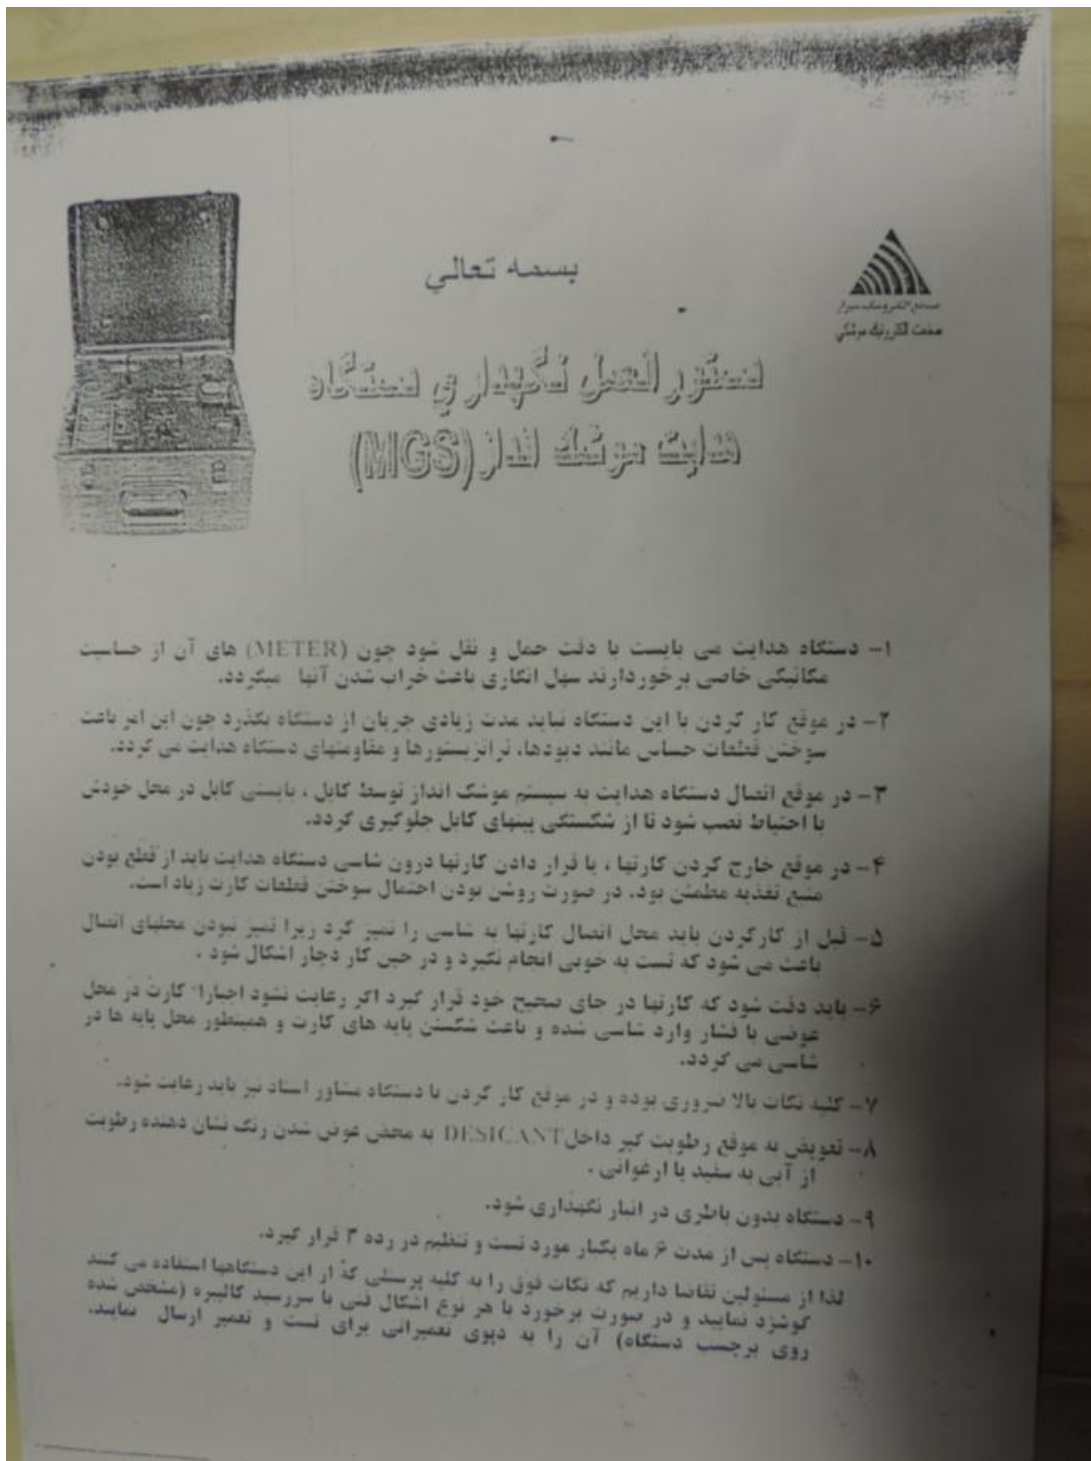 بسمه تعالي
صنايع الكترونيك شيراز
صنعت الكترونيك موشكي
دستور العمل نگهداري دستگاه
هدايت موشك انداز (MGS)
۱- دستگاه هدایت می بایست با دقت حمل و نقل شود چون (METER) های آن از حساسیت
مکانیکی خاصی برخوردارند سهل انگاری باعث خراب شدن آنها میگردد.
۲- در موقع کار کردن با این دستگاه نباید مدت زیادی جریان از دستگاه بگذرد چون این امر باعث
سوختن قطعات حساس مانند دیودها، ترانزیستورها و مقاومتهای دستگاه هدایت می گردد.
۳- در موقع اتصال دستگاه هدایت به سیستم موشک انداز توسط کابل ، بایستی کابل در محل خودش
با احتیاط نصب شود تا از شکستگی پینهای کابل جلوگیری گردد.
۴- در موقع خارج کردن کارتها ، یا قرار دادن کارتها درون شاسی دستگاه هدایت باید از قطع بودن
منبع تغذیه مطمئن بود. در صورت روشن بودن احتمال سوختن قطعات کارت زیاد است.
۵- قبل از کارکردن باید محل اتصال کارتها به شاسی را تمیز کرد زیرا تمیز نبودن محلهای اتصال
باعث می شود که تست به خوبی انجام نگیرد و در حین کار دچار اشکال شود .
۶- باید دقت شود که کارتها در جای صحیح خود قرار گیرد اگر رعایت نشود اجباراً کارت در محل
عوضی با فشار وارد شاسی شده و باعث شکستن پایه های کارت و همینطور محل پایه ها در
شاسی می گردد.
۷- کلیه نکات بالا ضروری بوده و در موقع کار کردن با دستگاه مشاور استاد نیز باید رعایت شود.
۸- تعویض به موقع رطوبت گیر داخل DESICANT به محض عوض شدن رنگ نشان دهنده رطوبت
از آبی به سفید یا ارغوانی .
۹- دستگاه بدون باطری در انبار نگهداری شود.
۱۰- دستگاه پس از مدت ۶ ماه یکبار مورد تست و تنظیم در رده ۳ قرار گیرد.
لذا از مسئولین تقاضا داریم که نکات فوق را به کلیه پرسنلی که از این دستگاهها استفاده می کنند
گوشزد نمایید و در صورت برخورد با هر نوع اشکال فنی یا سررسید کالیبره (مشخص شده
روی برچسب دستگاه) آن را به دپوی تعمیراتی برای تست و تعمیر ارسال نمایید.